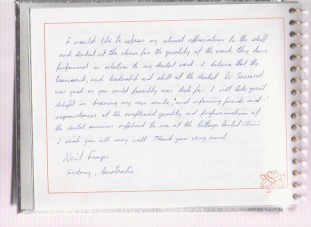 I would like to express my utmost appreciation to the staff
and dentist at the clinic for the quality of the work they have
performed in relation to my dental work. I believe that the
teamwork, and leadership and skill at the dentist Dr
was good as you could possibly ever hope for. I will take great
delight in bearing my new smile, and informing friends and
at the exceptional quality and professionalism of
the dental services at the Pattaya Dental Clinic
I wish you all very well. Thank you very much.
Neil
Sydney, Australia.